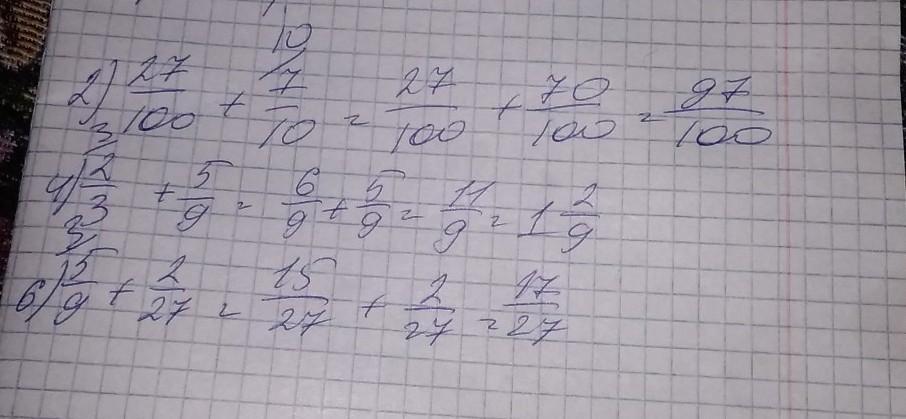 2) 27/100 + 10/ 7/10 = 27/100 + 70/100 = 97/100
4) 3/ 2/3 + 5/9 = 6/9 + 5/9 = 11/9 = 1 2/9
6) 3/ 5/9 + 2/27 = 15/27 + 2/27 = 17/27